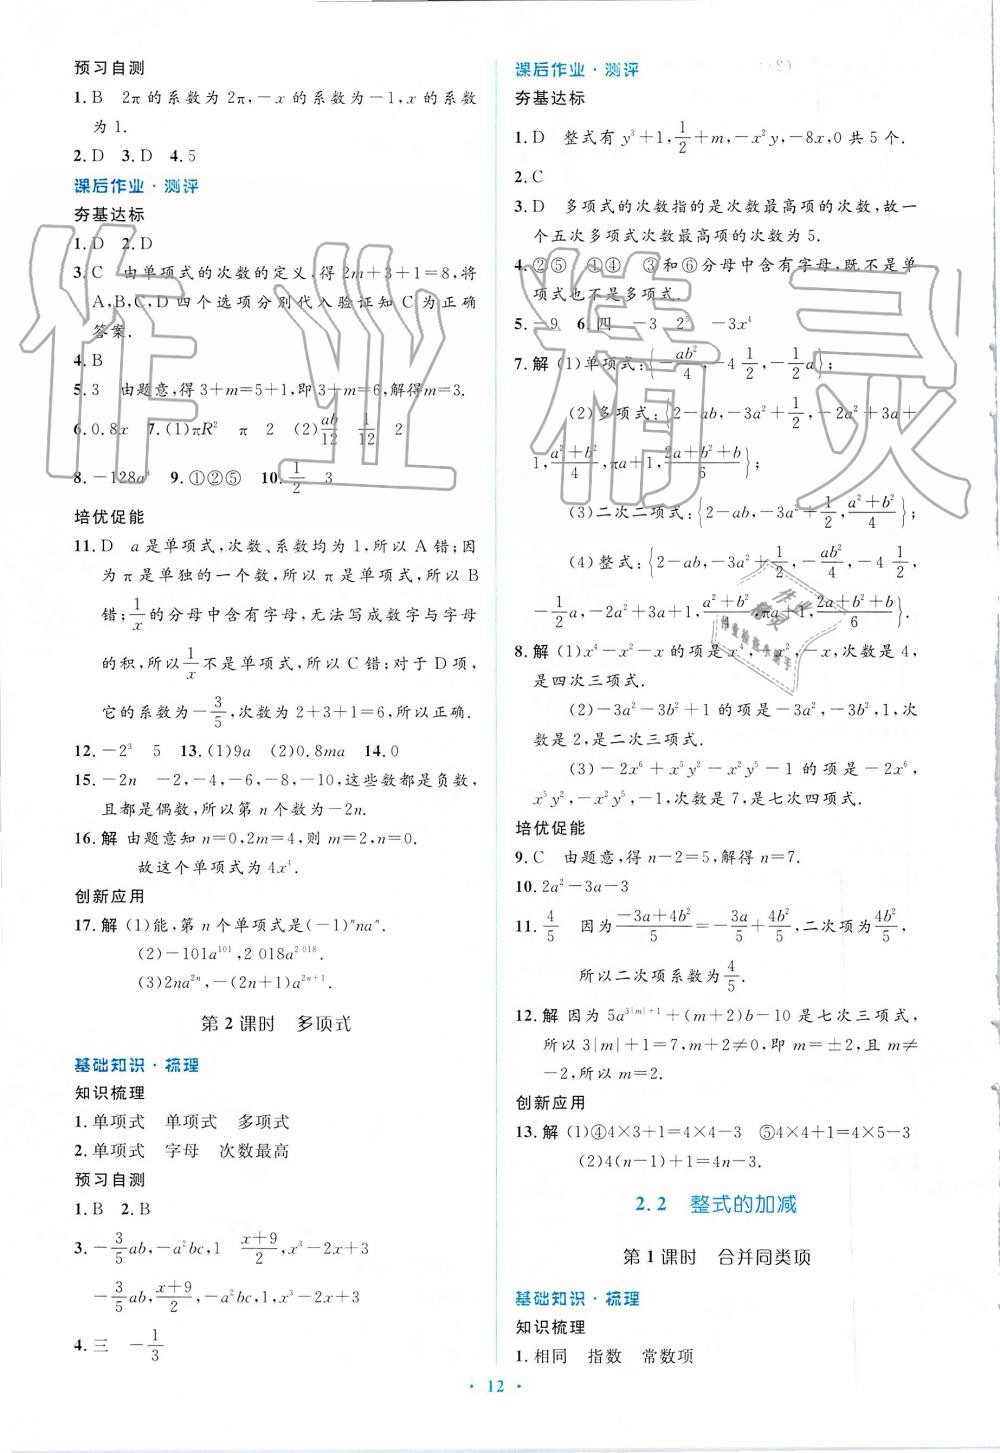 预习自测
1. B　2π 的系数为 2π, －x 的系数为－1, x 的系数
为 1.
2. D　3. D　4. 5
课后作业·测评
夯基达标
1. D　2. D
3. C　由单项式的次数的定义, 得 2m＋3＋1＝8, 将
A, B, C, D 四个选项分别代入验证知 C 为正确
答案.
4. B
5. 3　由题意, 得 3＋m＝5＋1, 即 3＋m＝6, 解得 m＝3.
6. 0.8x　7. (1)πR²　π　2　(2)ab/12　1/12　2
8. －128a⁸　9. ①②⑤　10. 1/2　3
培优促能
11. D　a 是单项式, 次数、系数均为 1, 所以 A 错; 因
为 π 是单独的一个数, 所以 π 是单项式, 所以 B
错; 1/x 的分母中含有字母, 无法写成数字与字母
的积, 所以 1/x 不是单项式, 所以 C 错; 对于 D 项,
它的系数为－3/5, 次数为 2＋3＋1＝6, 所以正确.
12. －2³　5　13. (1)9a　(2)0.8ma　14. 0
15. －2n　－2, －4, －6, －8, －10, 这些数都是负数,
且都是偶数, 所以第 n 个数为－2n.
16. 解 由题意知 n＝0, 2m＝4, 则 m＝2, n＝0.
故这个单项式为 4x⁴.
创新应用
17. 解 (1)能, 第 n 个单项式是(－1)ⁿnaⁿ.
(2)－101a¹⁰¹, 2 018a² ⁰¹⁸.
(3)2na²ⁿ, －(2n＋1)a²ⁿ⁺¹.
第 2 课时　多项式
基础知识·梳理
知识梳理
1. 单项式　单项式　多项式
2. 单项式　字母　次数最高
预习自测
1. B　2. B
3. －3/5ab, －a²bc, 1　(x＋9)/2, x³－2x
－3/5ab, (x＋9)/2, －a²bc, 1, x³－2x
4. 三　－1/3
课后作业·测评
夯基达标
1. D　整式有 y³＋1, 1/2＋m, －x²y, －8x, 0 共 5 个.
2. C
3. D　多项式的次数指的是次数最高项的次数, 故一
个五次多项式次数最高项的次数为 5.
4. ②⑤　①④　③和⑥分母中含有字母, 既不是单
项式也不是多项式.
5. －9　6. 四　－3　2³　－3x⁴
7. 解 (1)单项式: {－ab²/4, －4 1/2, －1/2a};
(2)多项式: {2－ab, －3a²＋1/2, －2a²＋3a＋
1, (a²＋b²)/4, πa＋1, (2a＋b²＋b)/6};
(3)二次二项式: {2－ab, －3a²＋1/2, (a²＋b²)/4};
(4)整式: {2－ab, －3a²＋1/2, －ab²/4, －4 1/2,
－1/2a, －2a²＋3a＋1, (a²＋b²)/4, πa＋1, (2a＋b²＋b)/6}.
8. 解 (1)x⁴－x²－x 的项是 x⁴, －x², －x, 次数是 4,
是四次三项式.
(2)－3a²－3b²＋1 的项是－3a², －3b², 1, 次
数是 2, 是二次三项式.
(3)－2x⁶＋x⁵y²－x²y⁵－1 的项是－2x⁶,
x⁵y², －x²y⁵, －1, 次数是 7, 是七次四项式.
培优促能
9. C　由题意, 得 n－2＝5, 解得 n＝7.
10. 2a²－3a－3
11. 4/5　因为 (－3a＋4b²)/5＝－3a/5＋4b²/5, 二次项为 4b²/5,
所以二次项系数为 4/5.
12. 解 因为 5a³|ᵐ|⁺¹＋(m＋2)b－10 是七次三项式,
所以 3|m|＋1＝7, m＋2≠0, 即 m＝±2, 且 m≠
－2, 所以 m＝2.
创新应用
13. 解 (1)④4×3＋1＝4×4－3　⑤4×4＋1＝4×5－3
(2)4(n－1)＋1＝4n－3.
2.2　整式的加减
第 1 课时　合并同类项
基础知识·梳理
知识梳理
1. 相同　指数　常数项
· 12 ·
作业精灵
作业
精灵
作业检查小助手